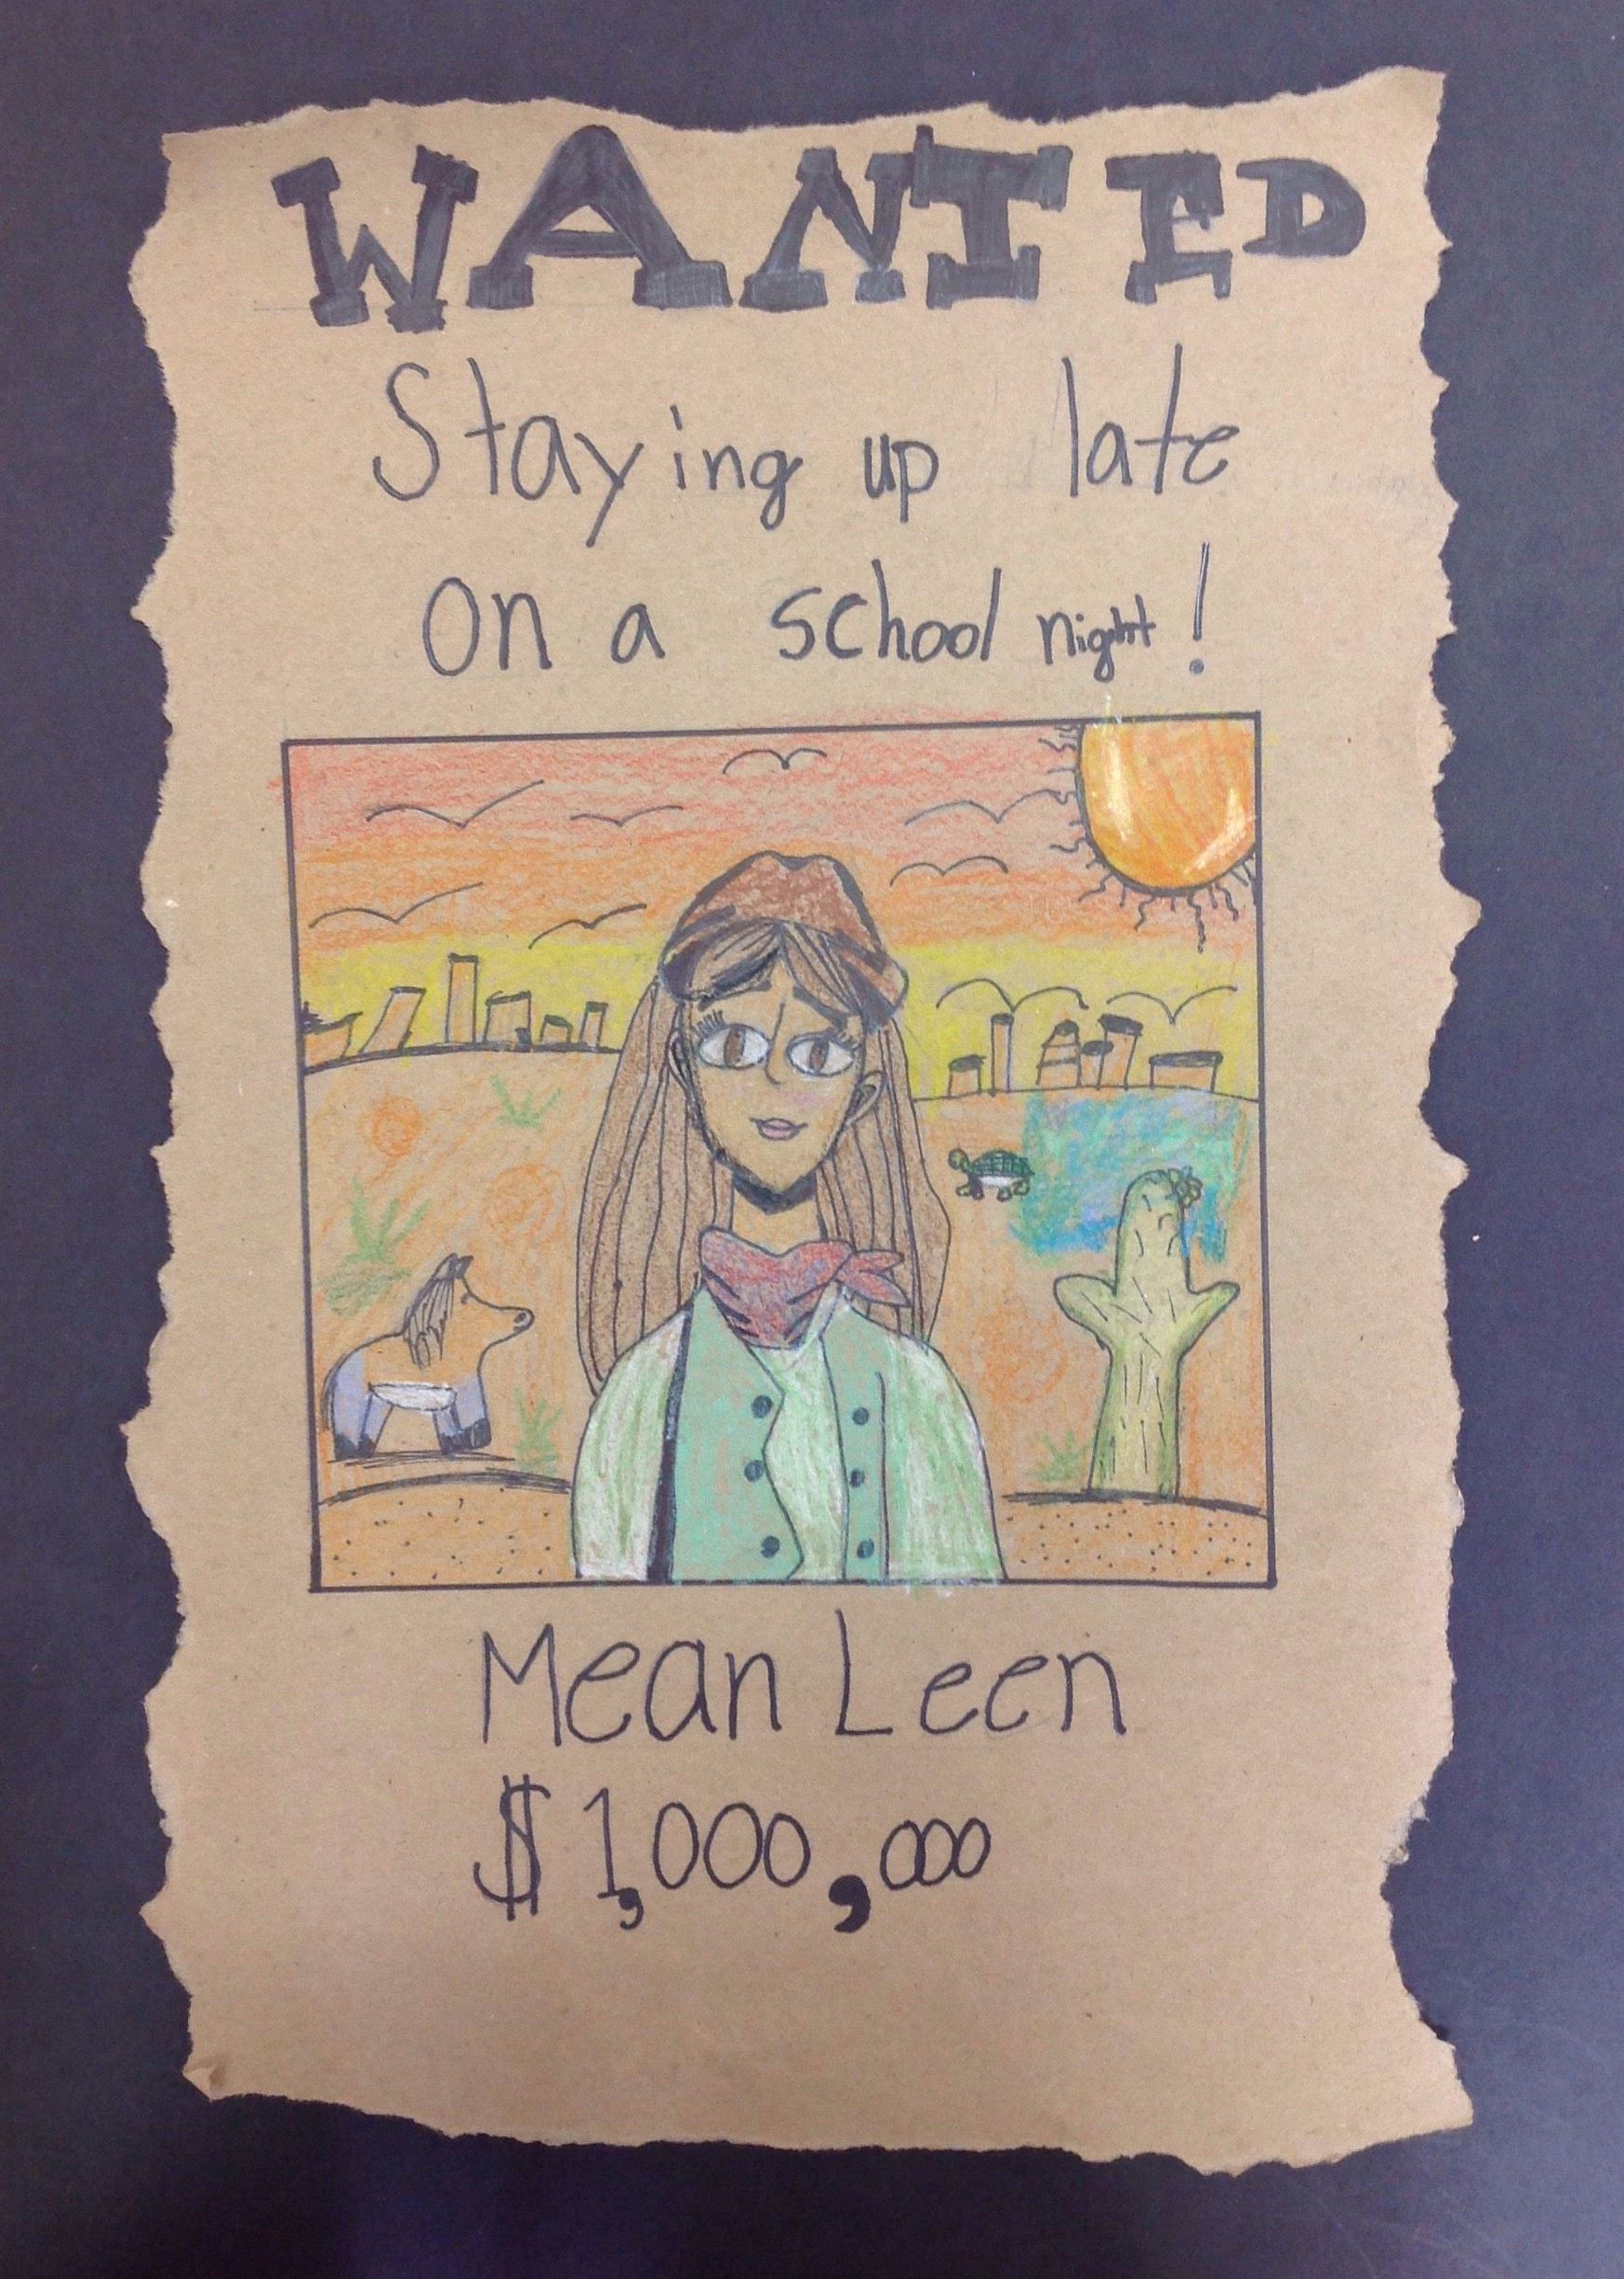 WANTED
Staying up late
on a school night!
Mean Leen
$1,000,000